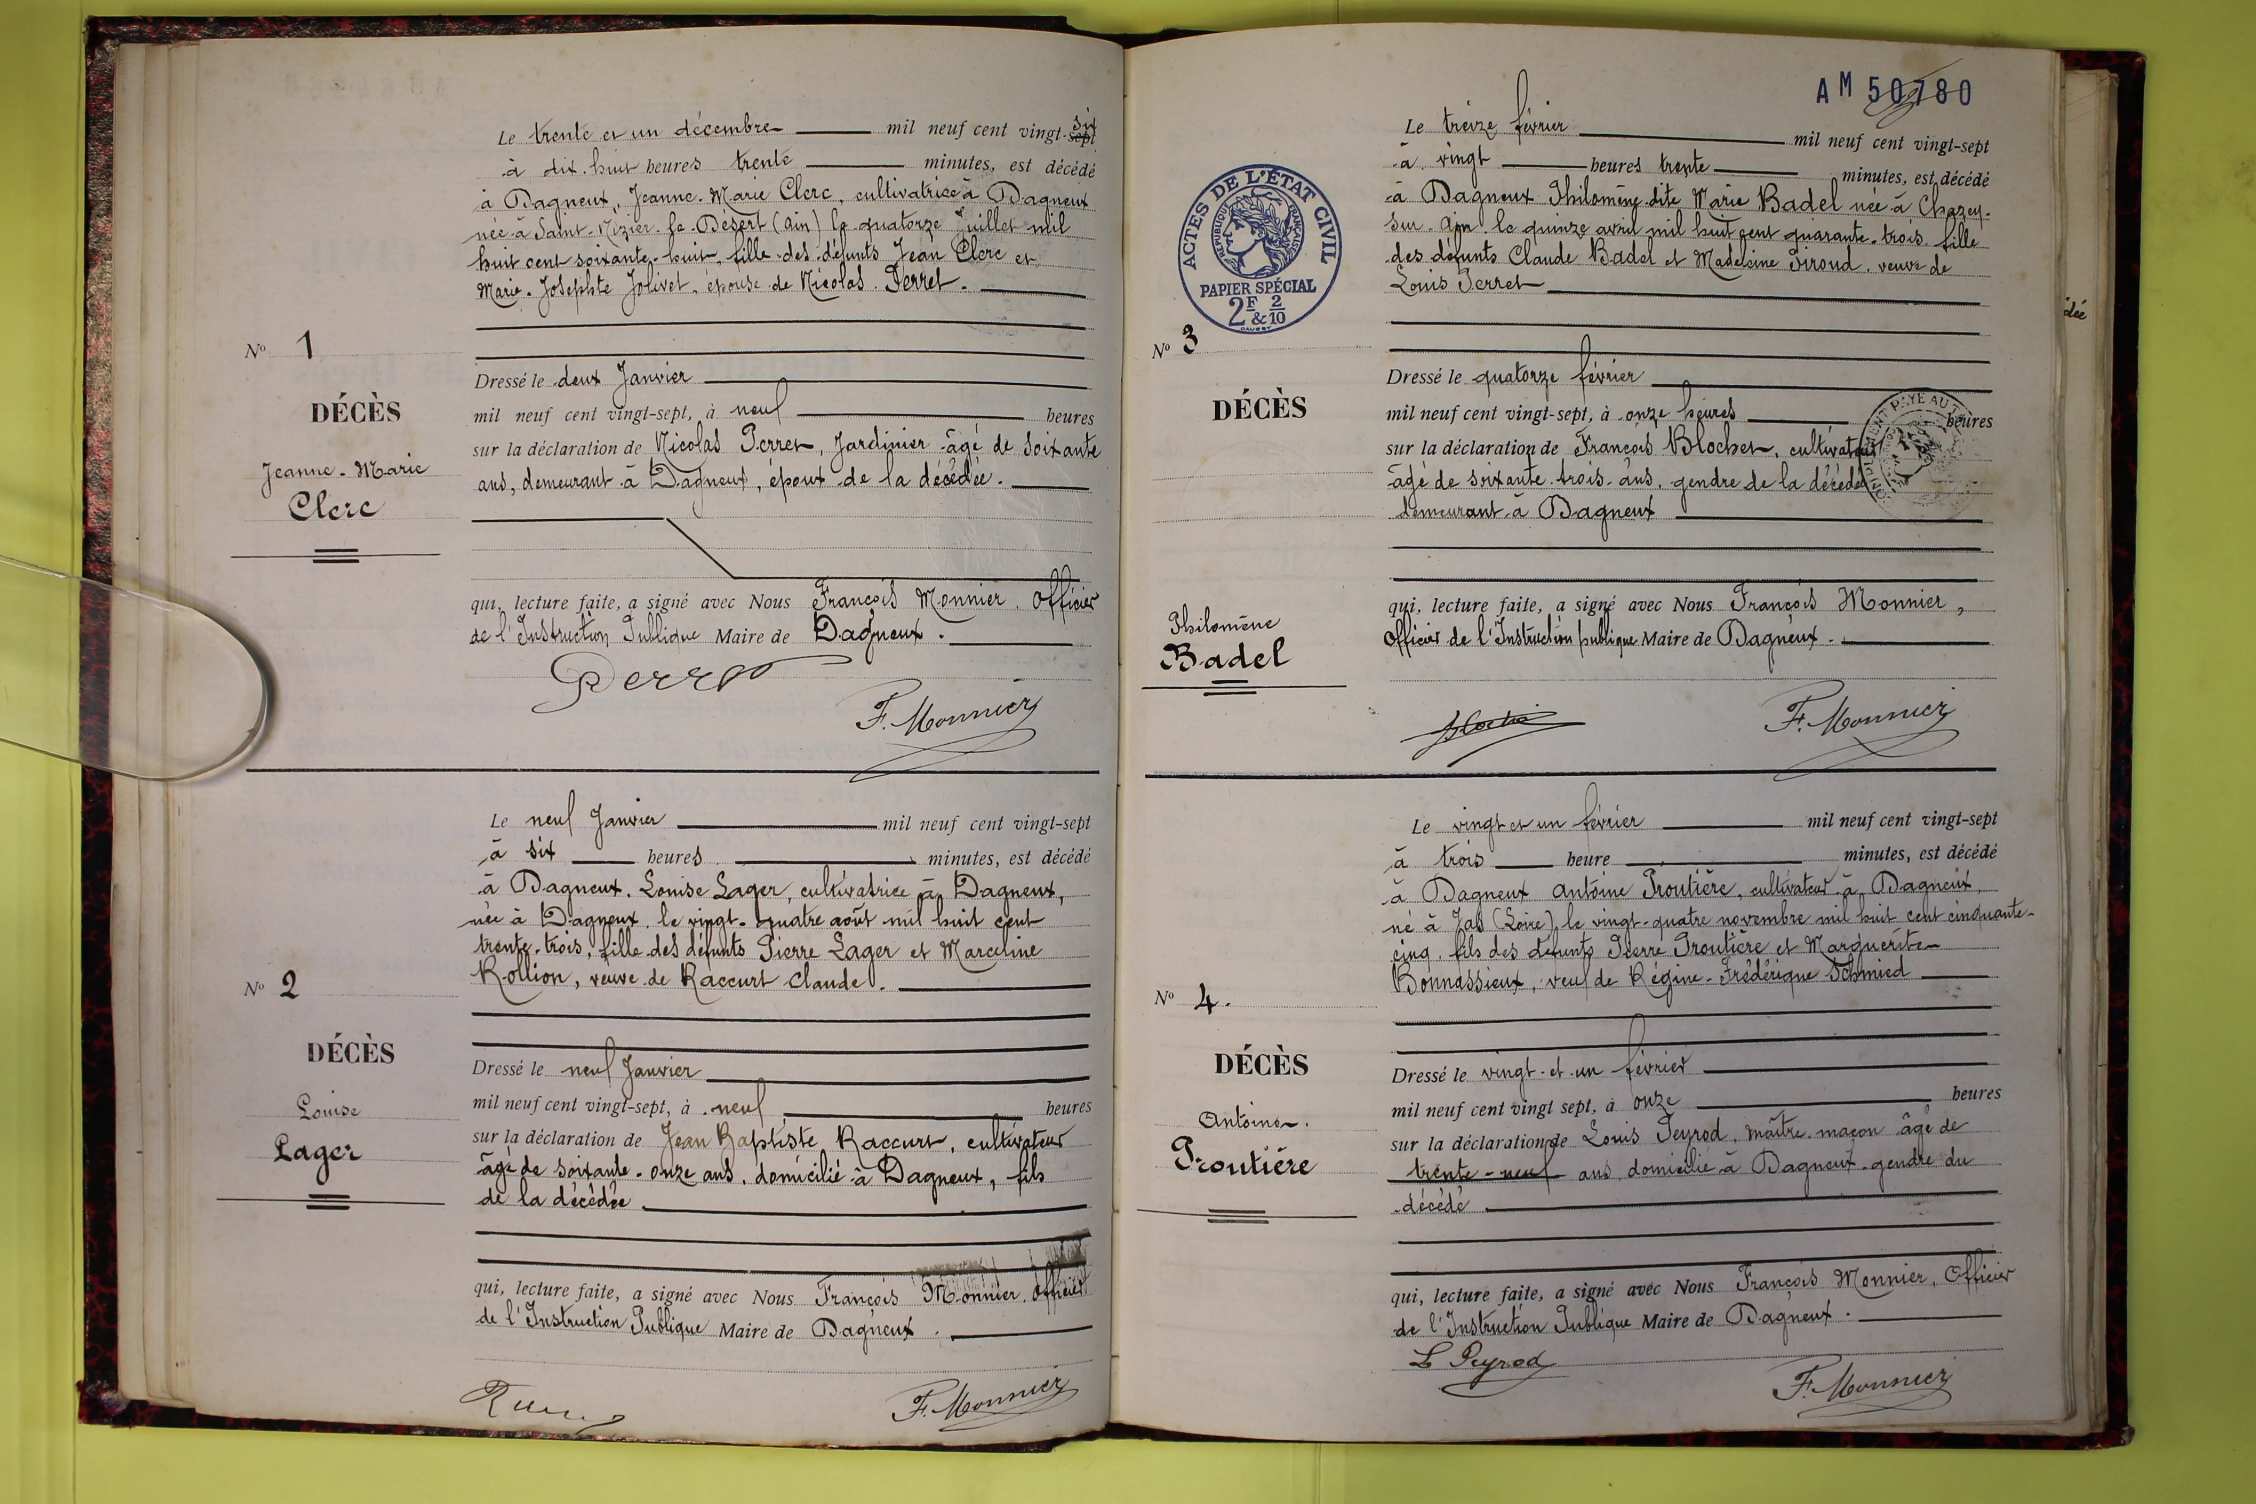 Le trente et un décembre mil neuf cent vingt-sept six
à dix-huit heures trente minutes, est décédé
à Dagneux, Jeanne-Marie Clerc, cultivatrice à Dagneux
née à Saint-Nizier-le-Désert (Ain) le quatorze Juillet mil
huit cent soixante-huit, fille des défunts Jean Clerc et
Marie-Josephte Jolivet, épouse de Nicolas Perret.
No 1
DÉCÈS
Jeanne-Marie
Clerc
Dressé le deux Janvier
mil neuf cent vingt-sept, à neuf heures
sur la déclaration de Nicolas Perret, Jardinier âgé de soixante
ans, demeurant à Dagneux, époux de la décédée.
qui, lecture faite, a signé avec Nous François Monnier, Officier
de l'Instruction Publique Maire de Dagneux.
Perret
F. Monnier
Le neuf Janvier mil neuf cent vingt-sept
à six heures minutes, est décédé
à Dagneux, Louise Lager, cultivatrice à Dagneux,
née à Dagneux le vingt-quatre août mil huit cent
trente-trois, fille des défunts Pierre Lager et Marceline
Rollion, veuve de Raccurt Claude.
No 2
DÉCÈS
Louise
Lager
Dressé le neuf Janvier
mil neuf cent vingt-sept, à neuf heures
sur la déclaration de Jean Baptiste Raccurt, cultivateur
âgé de soixante-onze ans, domicilié à Dagneux, fils
de la décédée
qui, lecture faite, a signé avec Nous François Monnier, Officier
de l'Instruction Publique Maire de Dagneux.
F. Monnier
AM 50780
ACTES DE L'ÉTAT CIVIL
RÉPUBLIQUE FRANÇAISE
PAPIER SPÉCIAL
2F & 2/10
Le treize février mil neuf cent vingt-sept
à vingt heures trente minutes, est décédé
à Dagneux Philomène dite Marie Badel née à Chazey-
sur-Ain le quinze avril mil huit cent quarante-trois fille
des défunts Claude Badel et Madeleine Piroud, veuve de
Louis Perret
No 3
DÉCÈS
Philomène
Badel
Dressé le quatorze février
mil neuf cent vingt-sept, à onze heures heures
sur la déclaration de François Blocher, cultivateur
âgé de soixante-trois ans, gendre de la décédée
demeurant à Dagneux
qui, lecture faite, a signé avec Nous François Monnier,
Officier de l'Instruction publique Maire de Dagneux.
F. Monnier
Le vingt et un février mil neuf cent vingt-sept
à trois heure minutes, est décédé
à Dagneux Antoine Proutière, cultivateur à Dagneux,
né à Jas (Loire) le vingt-quatre novembre mil huit cent cinquante-
cinq, fils des défunts Pierre Proutière et Marguerite
Bonnassieux, veuf de Régine-Frédérique Schmied
No 4.
DÉCÈS
Antoine.
Proutière
Dressé le vingt-et-un février
mil neuf cent vingt sept, à onze heures
sur la déclaration de Louis Peyrod, maître-maçon âgé de
trente-neuf ans domicilié à Dagneux-gendre du
décédé
qui, lecture faite, a signé avec Nous François Monnier, Officier
de l'Instruction Publique Maire de Dagneux.
L Peyrod
F. Monnier